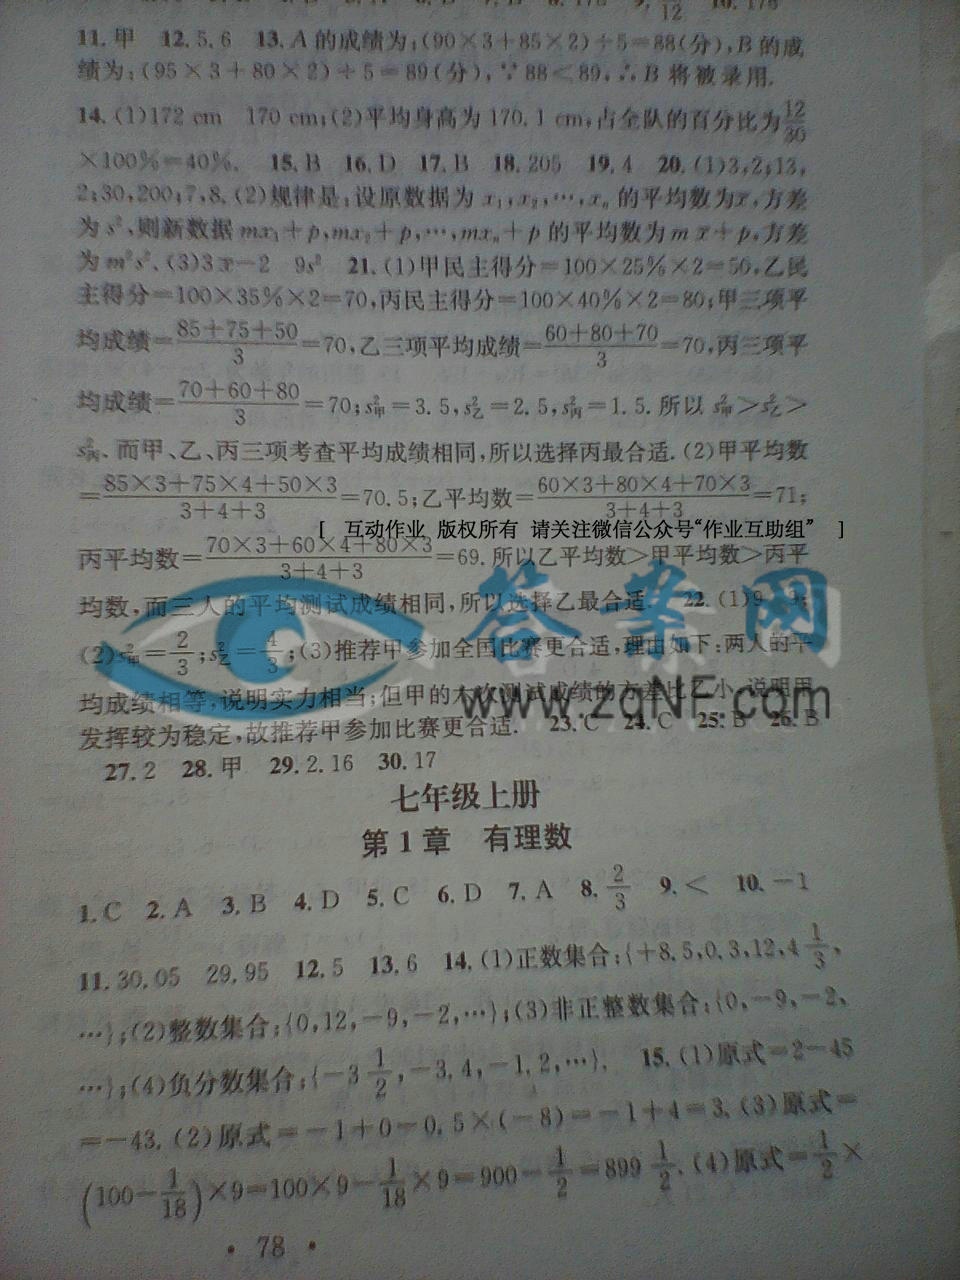 11.甲 12.5,6 13.A的成绩为:(90×3+85×2)÷5=88(分),B的成
绩为:(95×3+80×2)÷5=89(分),∵88<89,∴B将被录用.
14.(1)172 cm 170 cm;(2)平均身高为170.1 cm,占全队的百分比为12/30
×100%=40%. 15.B 16.D 17.B 18.205 19.4 20.(1)3,2;13,
2;30,200;7,8.(2)规律是:设原数据为x₁,x₂,…,xₙ的平均数为x̄,方差
为s²,则新数据mx₁+p,mx₂+p,…,mxₙ+p的平均数为m x̄+p,方差
为m²s².(3)3x̄-2 9s² 21.(1)甲民主得分=100×25%×2=50,乙民
主得分=100×35%×2=70,丙民主得分=100×40%×2=80;甲三项平
均成绩=(85+75+50)/3=70,乙三项平均成绩=(60+80+70)/3=70,丙三项平
均成绩=(70+60+80)/3=70;s²甲=3.5,s²乙=2.5,s²丙=1.5.所以s²甲>s²乙>
s²丙、而甲、乙、丙三项考查平均成绩相同,所以选择丙最合适.(2)甲平均数
=(85×3+75×4+50×3)/(3+4+3)=70.5;乙平均数=(60×3+80×4+70×3)/(3+4+3)=71;
[ 互动作业 版权所有 请关注微信公众号“作业互助组” ]
丙平均数=(70×3+60×4+80×3)/(3+4+3)=69.所以乙平均数>甲平均数>丙平
均数,而三人的平均测试成绩相同,所以选择乙最合适. 22.(1)9
(2)s²甲=2/3;s²乙=4/3;(3)推荐甲参加全国比赛更合适,理由如下:两人的平
均成绩相等,说明实力相当;但甲的六次测试成绩的方差比乙小,说明甲
发挥较为稳定,故推荐甲参加比赛更合适. 23.C 24.C 25.B 26.B
答案网
www.zqNF.com
27.2 28.甲 29.2.16 30.17
七年级上册
第1章 有理数
1.C 2.A 3.B 4.D 5.C 6.D 7.A 8.2/3 9.< 10.-1
11.30.05 29.95 12.5 13.6 14.(1)正数集合:{+8.5,0.3,12,4 1/3,
…};(2)整数集合:{0,12,-9,-2,…};(3)非正整数集合:{0,-9,-2,
…};(4)负分数集合:{-3 1/2,-3.4,-1.2,…}. 15.(1)原式=2-45
=-43.(2)原式=-1+0-0.5×(-8)=-1+4=3.(3)原式=
(100-1/18)×9=100×9-1/18×9=900-1/2=899 1/2.(4)原式=1/2×
· 78 ·